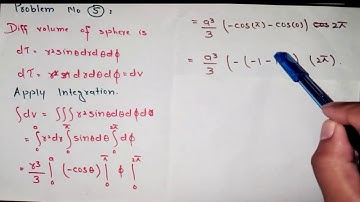 Problem No ⑤ :
Diff volume of sphere is
dτ = r²sinθdrdθdϕ
dτ = drdθdϕ = dv
Apply Integration.
∫dv = ∫∫∫r²sinθdrdθdϕ
= ∫₀ᵃ r²dr ∫₀^π sinθdθ ∫₀^2π dϕ
= r³/3 |₀ᵃ (-cosθ)|₀^π ϕ |₀^2π
= a³/3 (-cos(π)-cos(0)) 2π
= a³/3 (-(-1- (2π).